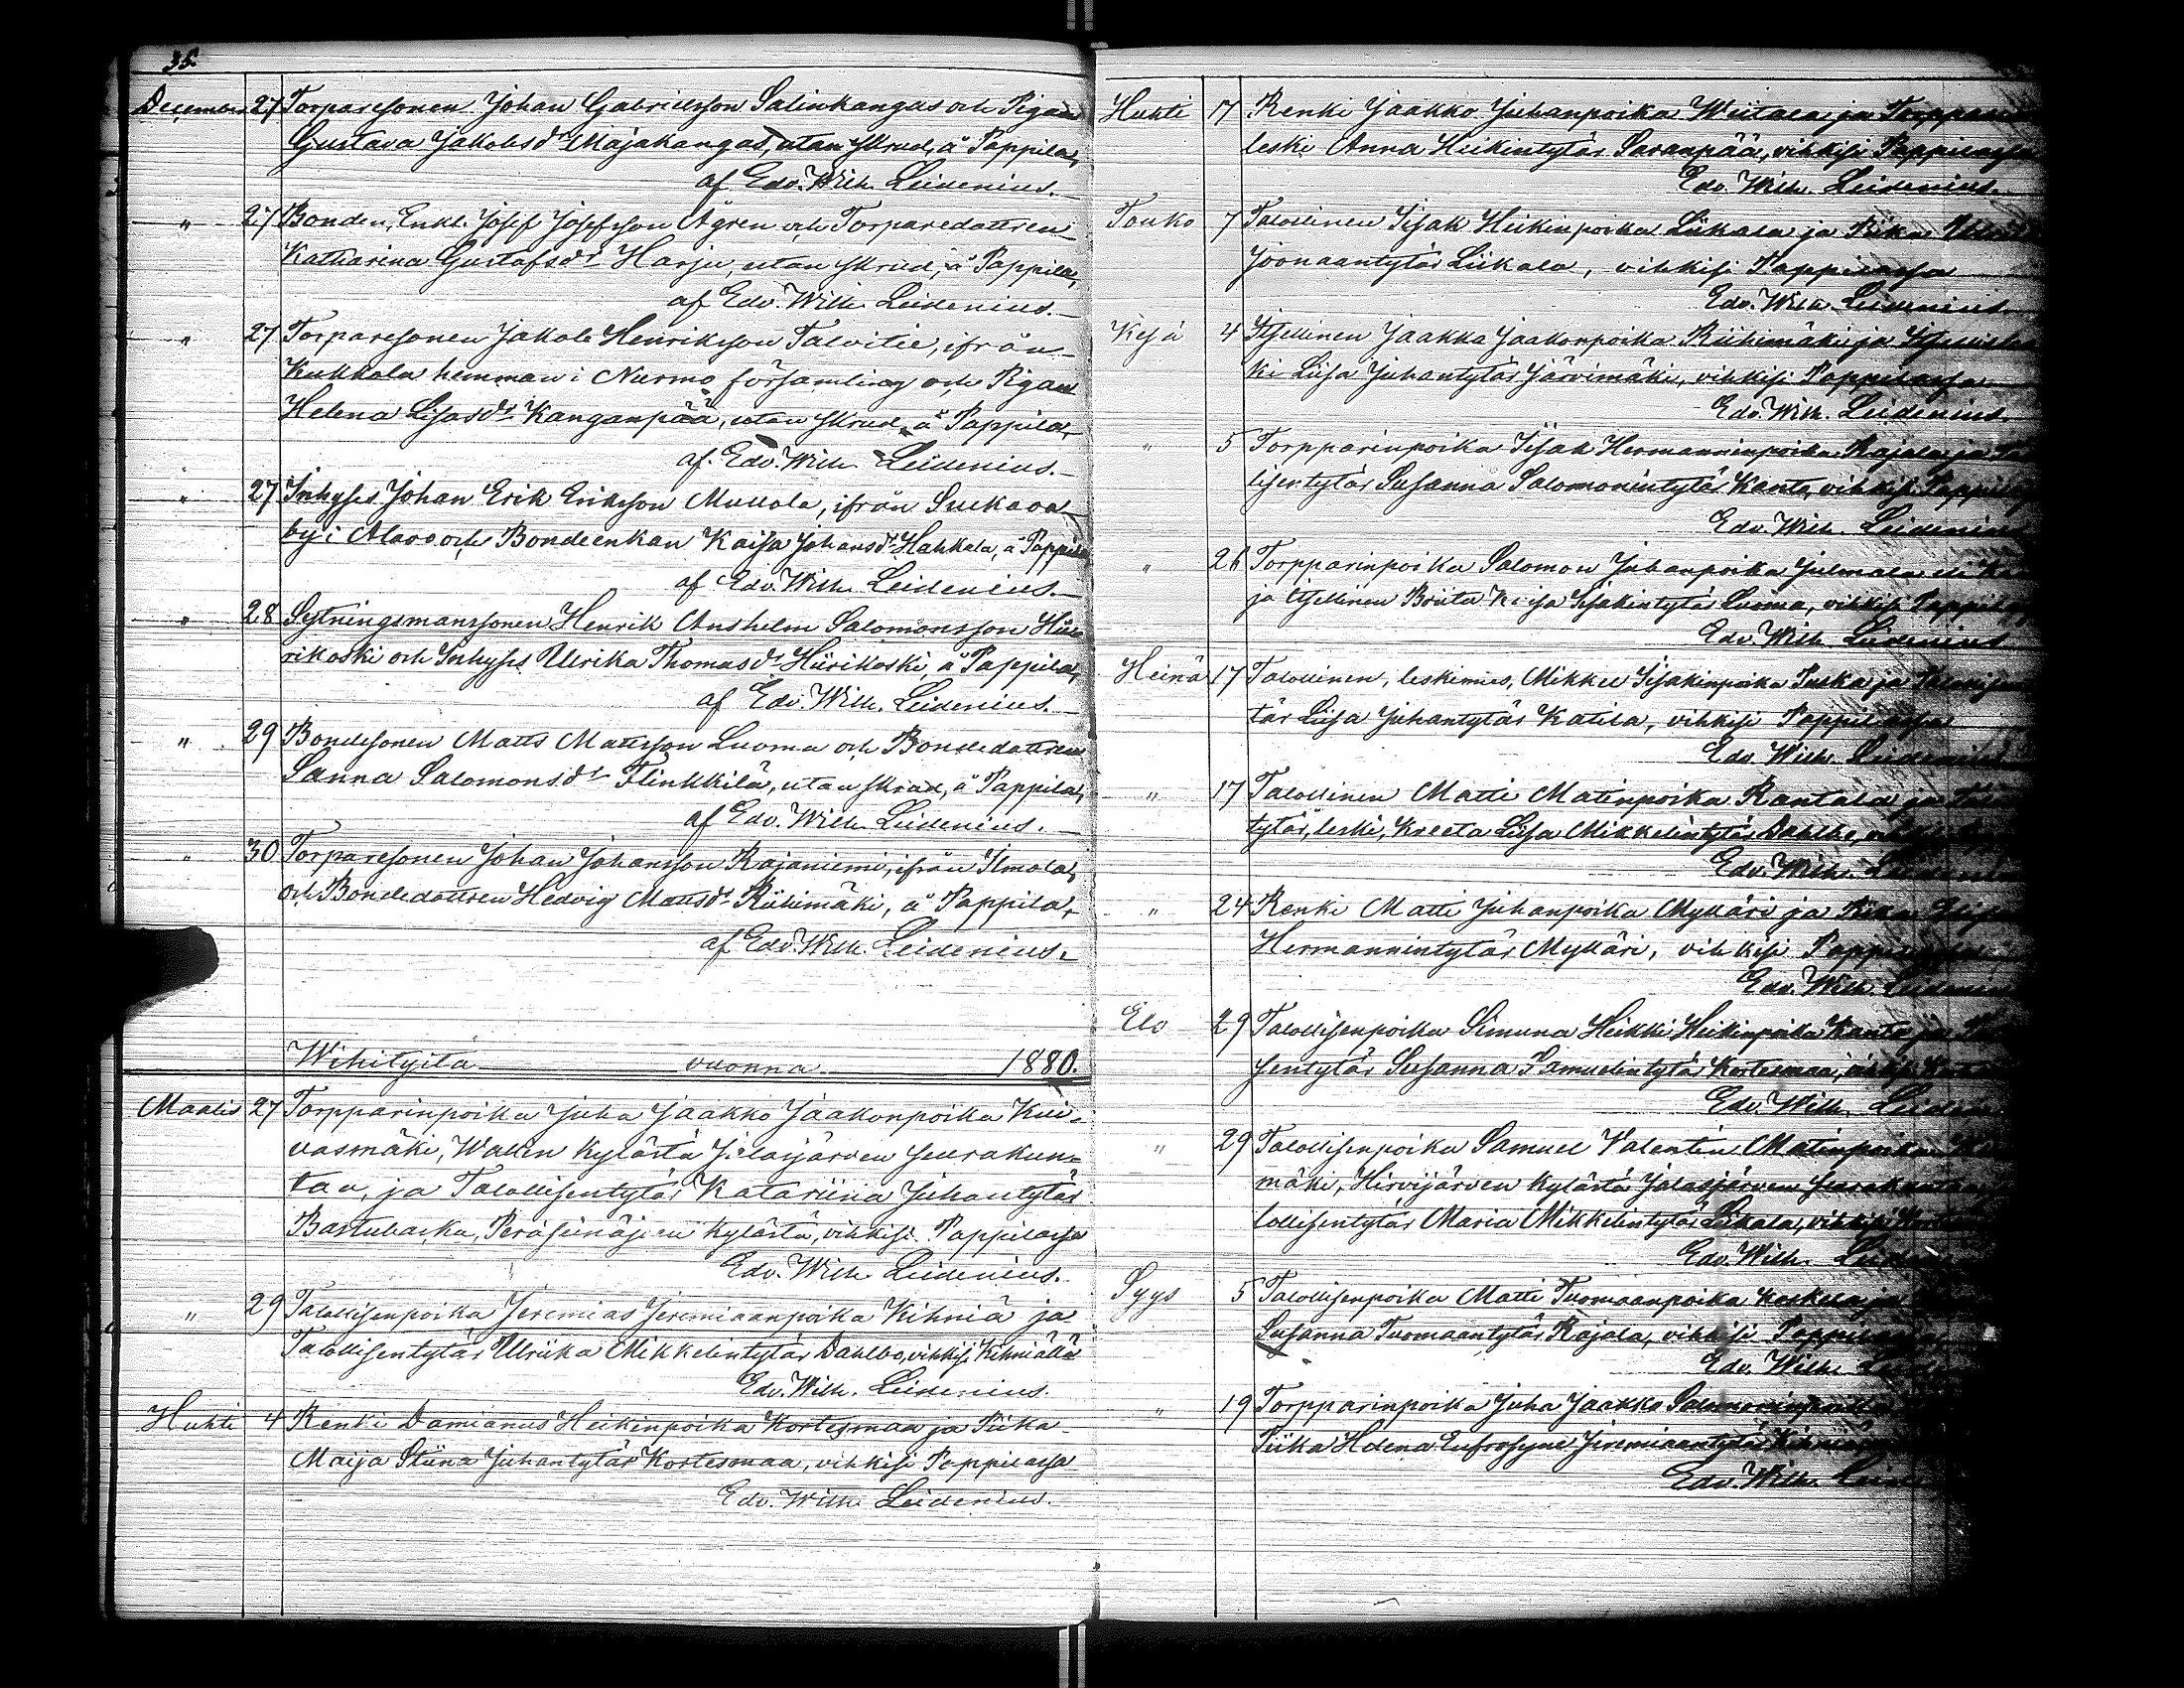 36.
December 27 Torparesonen Johan Gabrielsson Salinkangas och Pigan
Gustava Jakobsdr Majakangas, utan skrud, å Pappila,
af Edv. Wilh. Leidenius.
" 27 Bonden, Enkl. Josef Josefsson Ågren och Torparedottren
Katharina Gustafsdr Harju, utan skrud, å Pappila,
af Edv. Wilh. Leidenius.
" 27 Torparesonen Jakob Henriksson Talvitie, ifrån
Kukkola hemman i Nurmo församling och Pigan
Helena Lisasdr Kanganpää, utan skrud, å Pappila,
af Edv. Wilh. Leidenius.
" 27 Inhyses Johan Erik Eriksson Mullola, ifrån Sukava
by i Alavo och Bondeenkan Kaisa Johansdr Hahkela, å Pappila
af Edv. Wilh. Leidenius.
" 28 Sytningsmanssonen Henrik Anshelm Salomonsson Hii
rikoski och Inhyses Ulrika Thomasdr Hiirikoski, å Pappila,
af Edv. Wilh. Leidenius.
" 29 Bondesonen Matts Mattsson Luoma och Bondedottren
Sanna Salomonsdr Flinkkilä, utan skrud, å Pappila,
af Edv. Wilh. Leidenius.
" 30 Torparesonen Johan Johansson Rajaniemi, ifrån Ilmola,
och Bondedottren Hedvig Mattsdr Riihimäki, å Pappila,
af Edv. Wilh. Leidenius.
Wihityitä vuonna 1880.
Maalis 27 Torpparinpoika Juha Jaakko Jaakonpoika Kui-
vasmäki, Wallin kylästä Jalasjärven seurakun-
taa, ja Talollisentytär Katariina Juhantytär
Bastubacka, Peräseinäjoen kylästä, vihkisi Pappilassa
Edv. Wilh. Leidenius.
" 29 Talollisenpoika Jeremias Jeremiaanpoika Kihniä ja
Talollisentytär Ulriika Mikkelintytär Dahlbo, vihkisi Kihniällä
Edv. Wilh. Leidenius.
Huhti 4 Renki Damianus Heikinpoika Kortesmaa ja Piika
Maija Stiina Juhantytär Kortesmaa, vihkisi Pappilassa
Edv. Wilh. Leidenius.
Huhti 17 Renki Jaakko Juhanpoika Wiitala ja Torpparin
leski Anna Heikintytär Saranpää, vihkisi Pappilassa
Edv. Wilh. Leidenius.
Touko 7 Talollinen Iisak Heikinpoika Liikala ja Piika
Joonaantytär Liikala, vihkisi Pappilassa
Edv. Wilh. Leidenius.
Kesä 4 Itsellinen Jaakko Jaakonpoika Riihimäki ja
ki Liisa Juhantytär Järvimäki, vihkisi Pappilassa
Edv. Wilh. Leidenius.
" 5 Torpparinpoika Iisak Hermanninpoika Rajala ja
lisentytär Susanna Salomonintytär Kanto, vihkisi Pappilassa
Edv. Wilh. Leidenius
" 26 Torpparinpoika Salomon Juhanpoika Julmala eli
ja itsellinen Briita Kaisa Iisakintytär Luoma, vihkisi Pappilassa
Edv. Wilh. Leidenius
Heinä 17 Talollinen, leskimies, Mikkel Iisakinpoika Puska ja
tär Liisa Juhantytär Katila, vihkisi Pappilassa
Edv. Wilh. Leidenius
" 17 Talollinen Matti Matinpoika Rantala ja
tytär, leski, Kreeta Liisa Mikkelintytär
Edv. Wilh.
" 24 Renki Matti Juhanpoika Mylläri ja Piika
Hermannintytär Mylläri, vihkisi Pappilassa
Edv. Wilh. Leidenius
Elo 29 Talollisenpoika Simuna Heikki Heikinpoika Kanto ja
sentytär Susanna Samuelintytär Kortesmaa,
Edv. Wilh. Leidenius
" 29 Talollisenpoika Samuel Valentin Matinpoika
mäki, Hirvijärven kylästä Jalasjärven seurakuntaa
lollisentytär Maria Mikkelintytär Liikala, vihkisi
Edv. Wilh.
Syys 5 Talollisenpoika Matti Tuomaanpoika Koskela ja
Susanna Tuomaantytär Rajala, vihkisi Pappilassa
Edv. Wilh.
" 19 Torpparinpoika Juha Jaakko Salomoninpoika
Piika Helena Eufrosyne Jeremiaantytär Kihniä
Edv. Wilh.